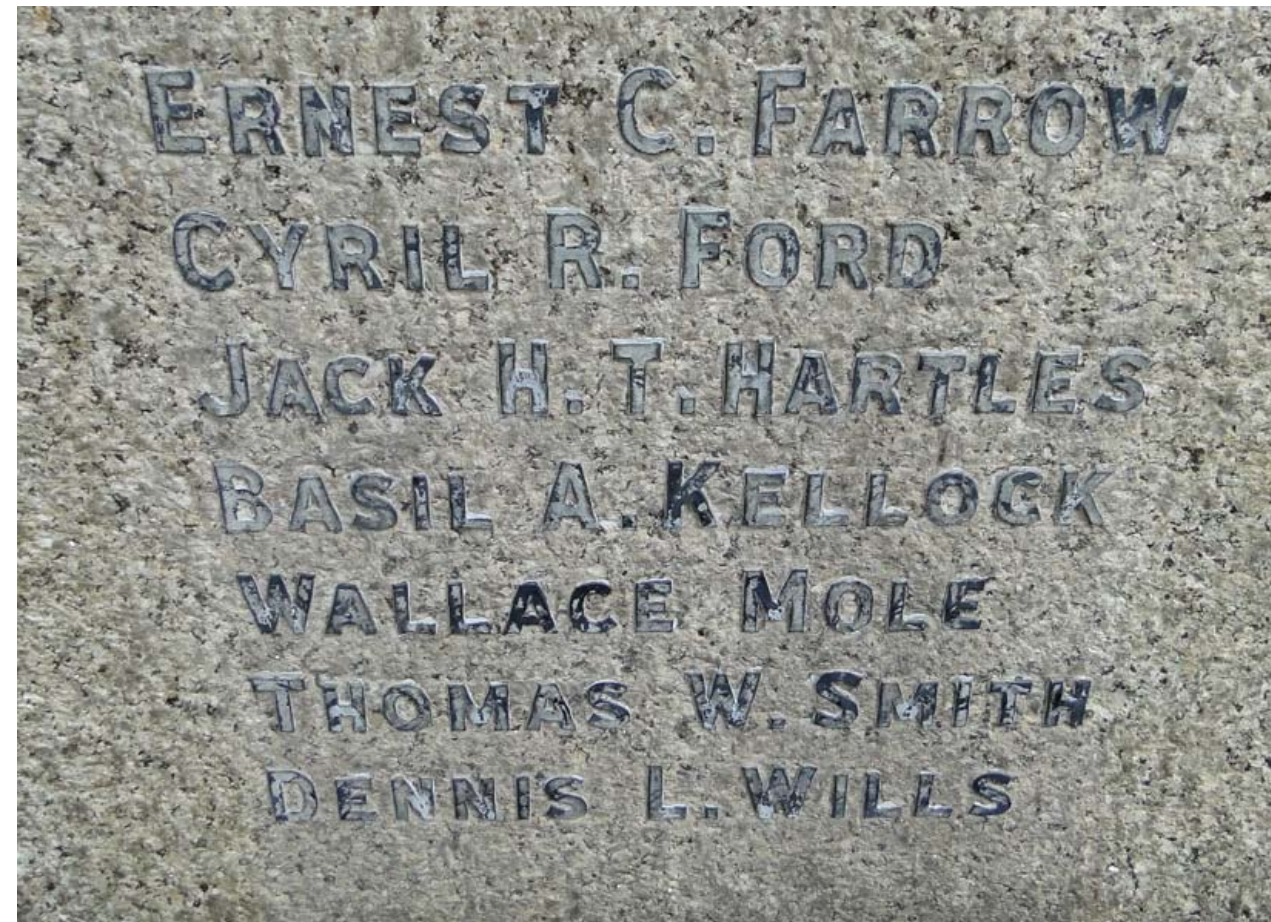 Ernest C. Farrow
Cyril R. Ford
Jack H. T. Hartles
Basil A. Kellock
Wallace Mole
Thomas W. Smith
Dennis L. Wills